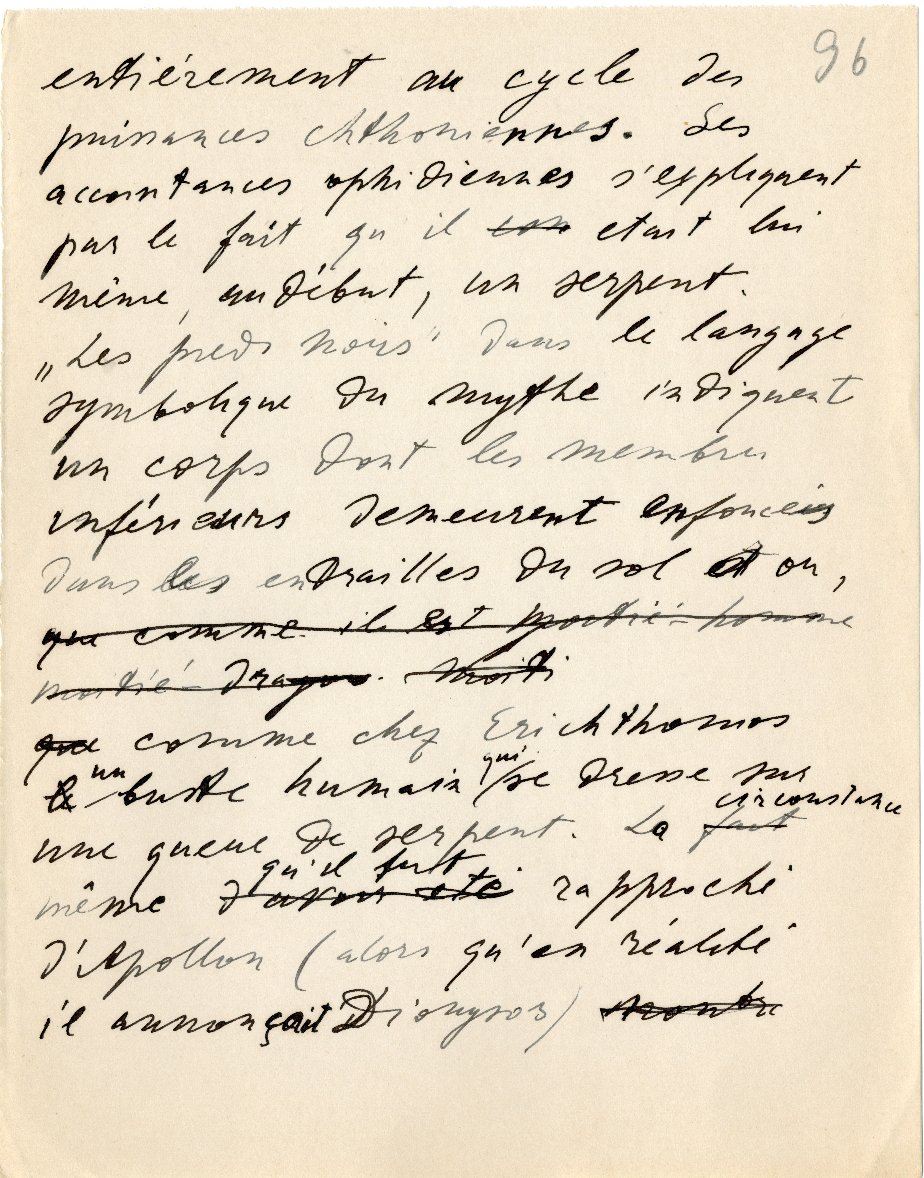 96
entiérement au cycle des
puissances chthoniennes. Ses
accointances ophidiennes s'expliquent
par le fait qu'il etait lui
même, au début, un serpent.
„Les pieds noirs" dans le langage
symbolique du mythe indiquent
un corps dont les membres
inférieurs demeurent enfoncés
dans les entrailles du sol et ou,
que comme il est moitié-homme
moitié-dragon. moiti
que comme chez Erichthonios
un qui
le buste humain se dresse sur
circonstance
une queue de serpent. La fait
qu'il fut
même d'avoir eté rapproché
d'Apollon (alors qu'en réalité
il annonçait Dionysos) montre